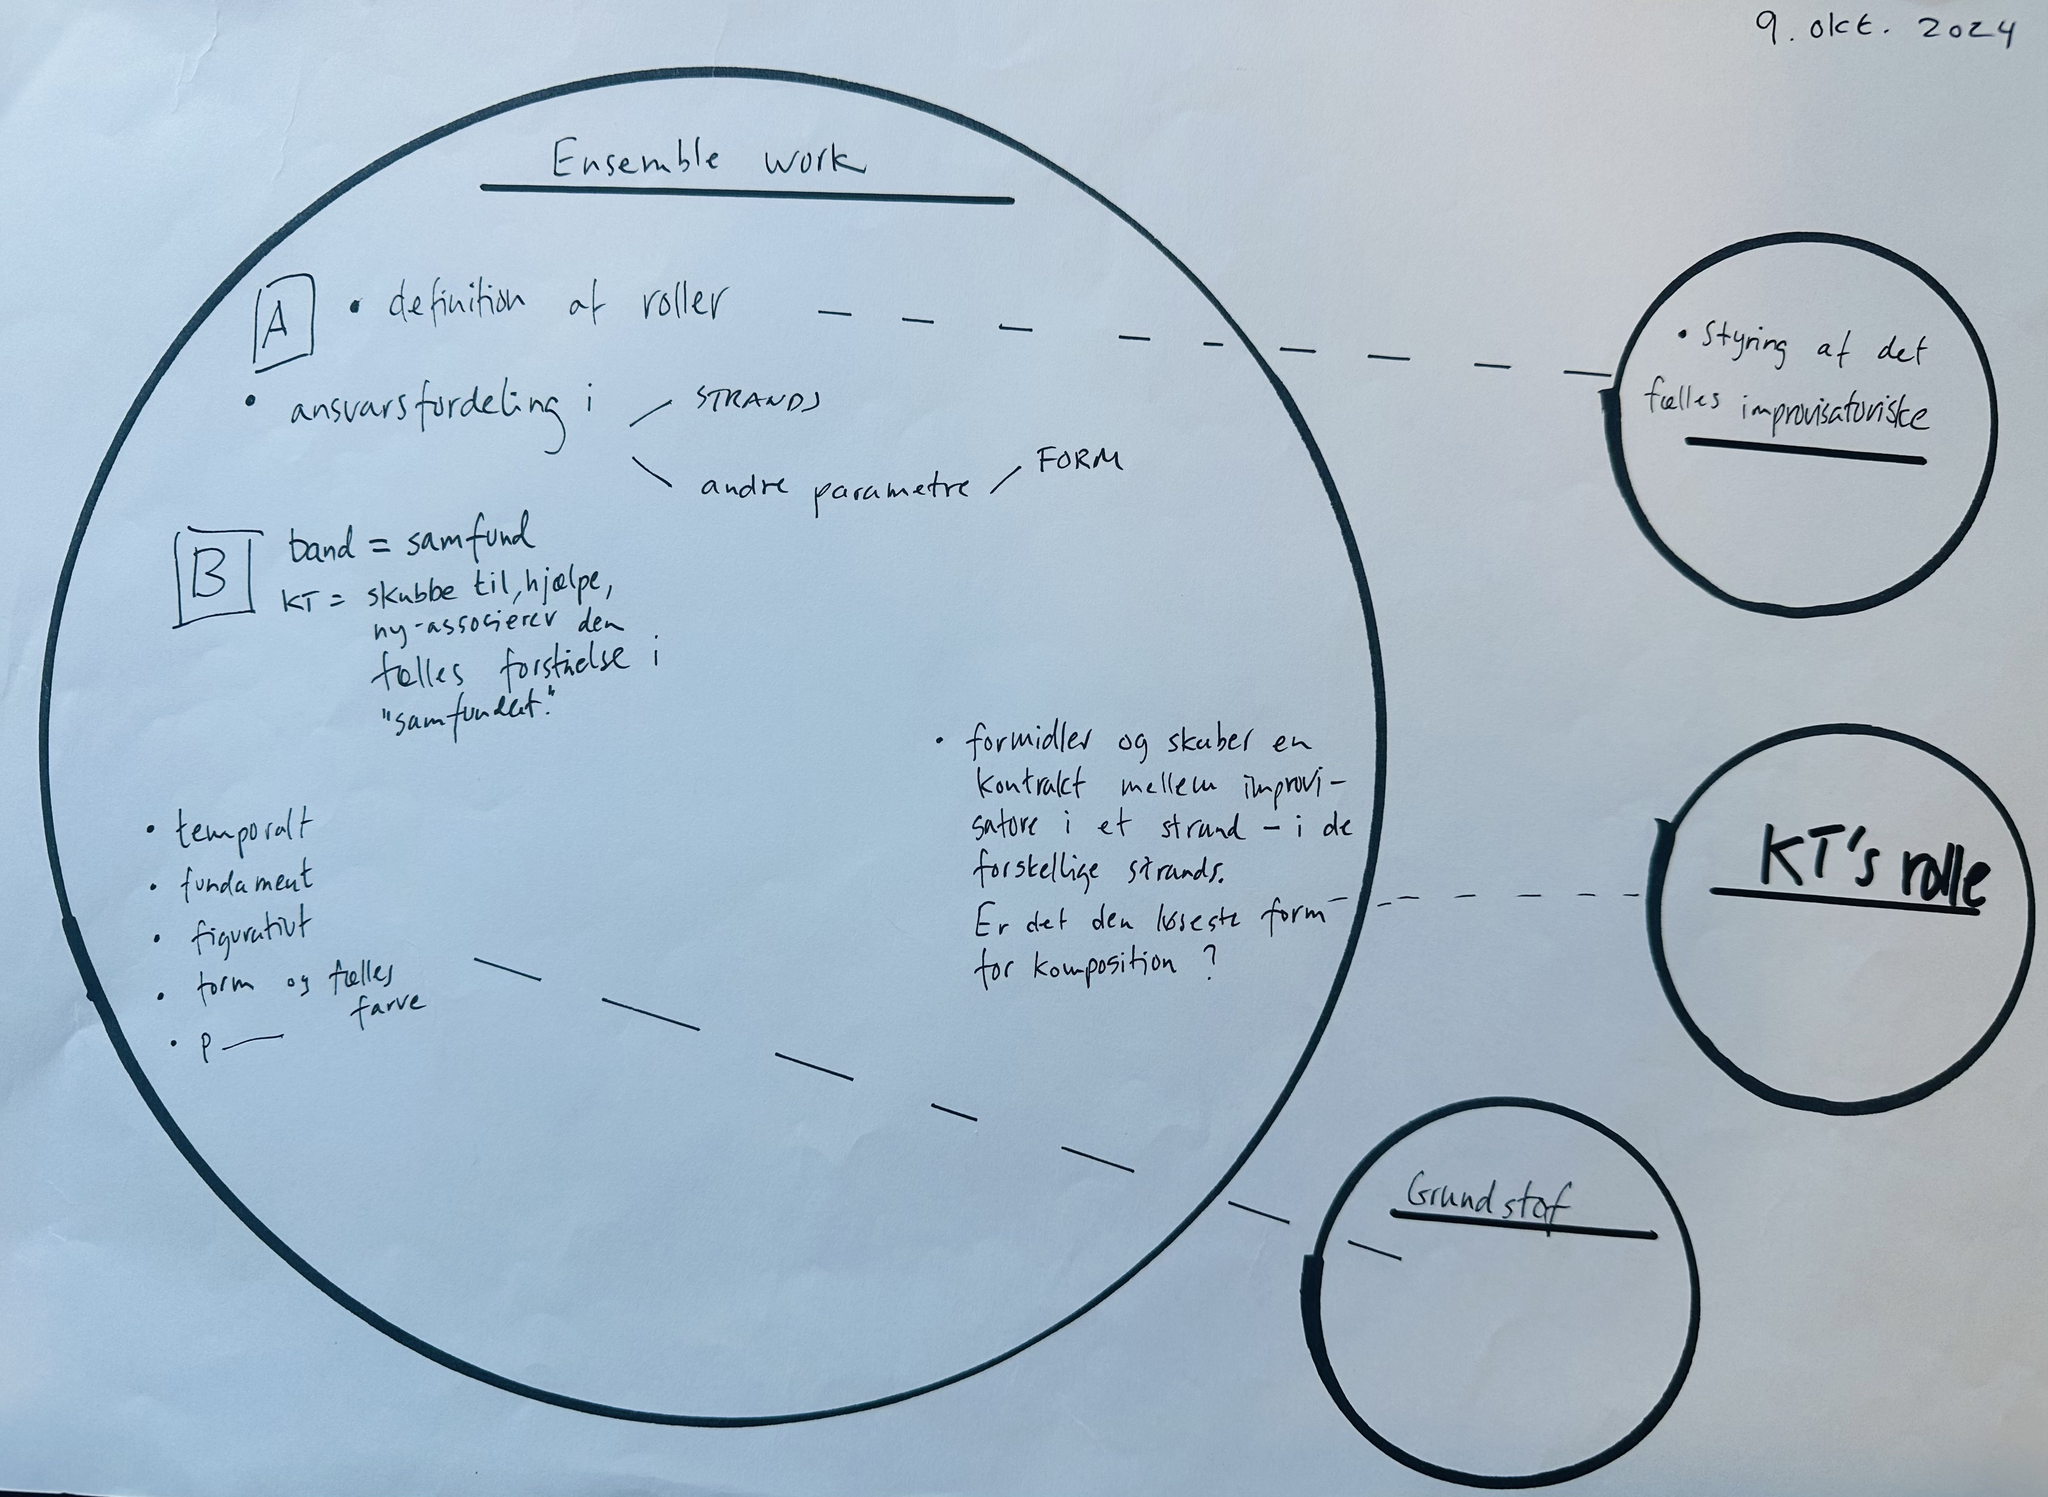 9. okt. 2024
Ensemble work
A
• definition af roller
• ansvarsfordeling i
STRANDS
andre parametre
FORM
B
band = samfund
KT = skubbe til, hjælpe,
ny-associerer den
fælles forståelse i
"samfundet."
• temporalt
• fundament
• figurativt
• form og fælles
farve
• p
• formidler og skaber en
kontrakt mellem improvi-
satore i et strand - i de
forskellige strands.
Er det den løseste form
for komposition ?
• Styring af det
fælles improvisatoriske
KT's rolle
Grundstof